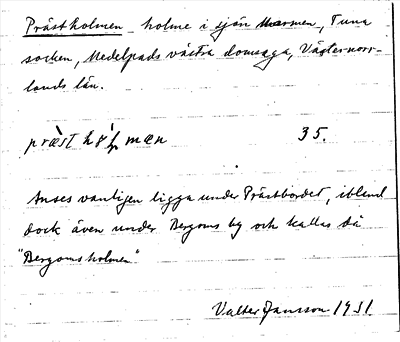 Prästholmen holme i sjön Marmen, Tuna
socken, Medelpads västra domsaga, Västernorr-
lands län.
præst hɷl̥mæn 35.
Anses vanligen ligga under Prästbordet, ibland
dock även under Bergoms by och kallas då
"Bergomsholmen"
Valter Jansson 1931